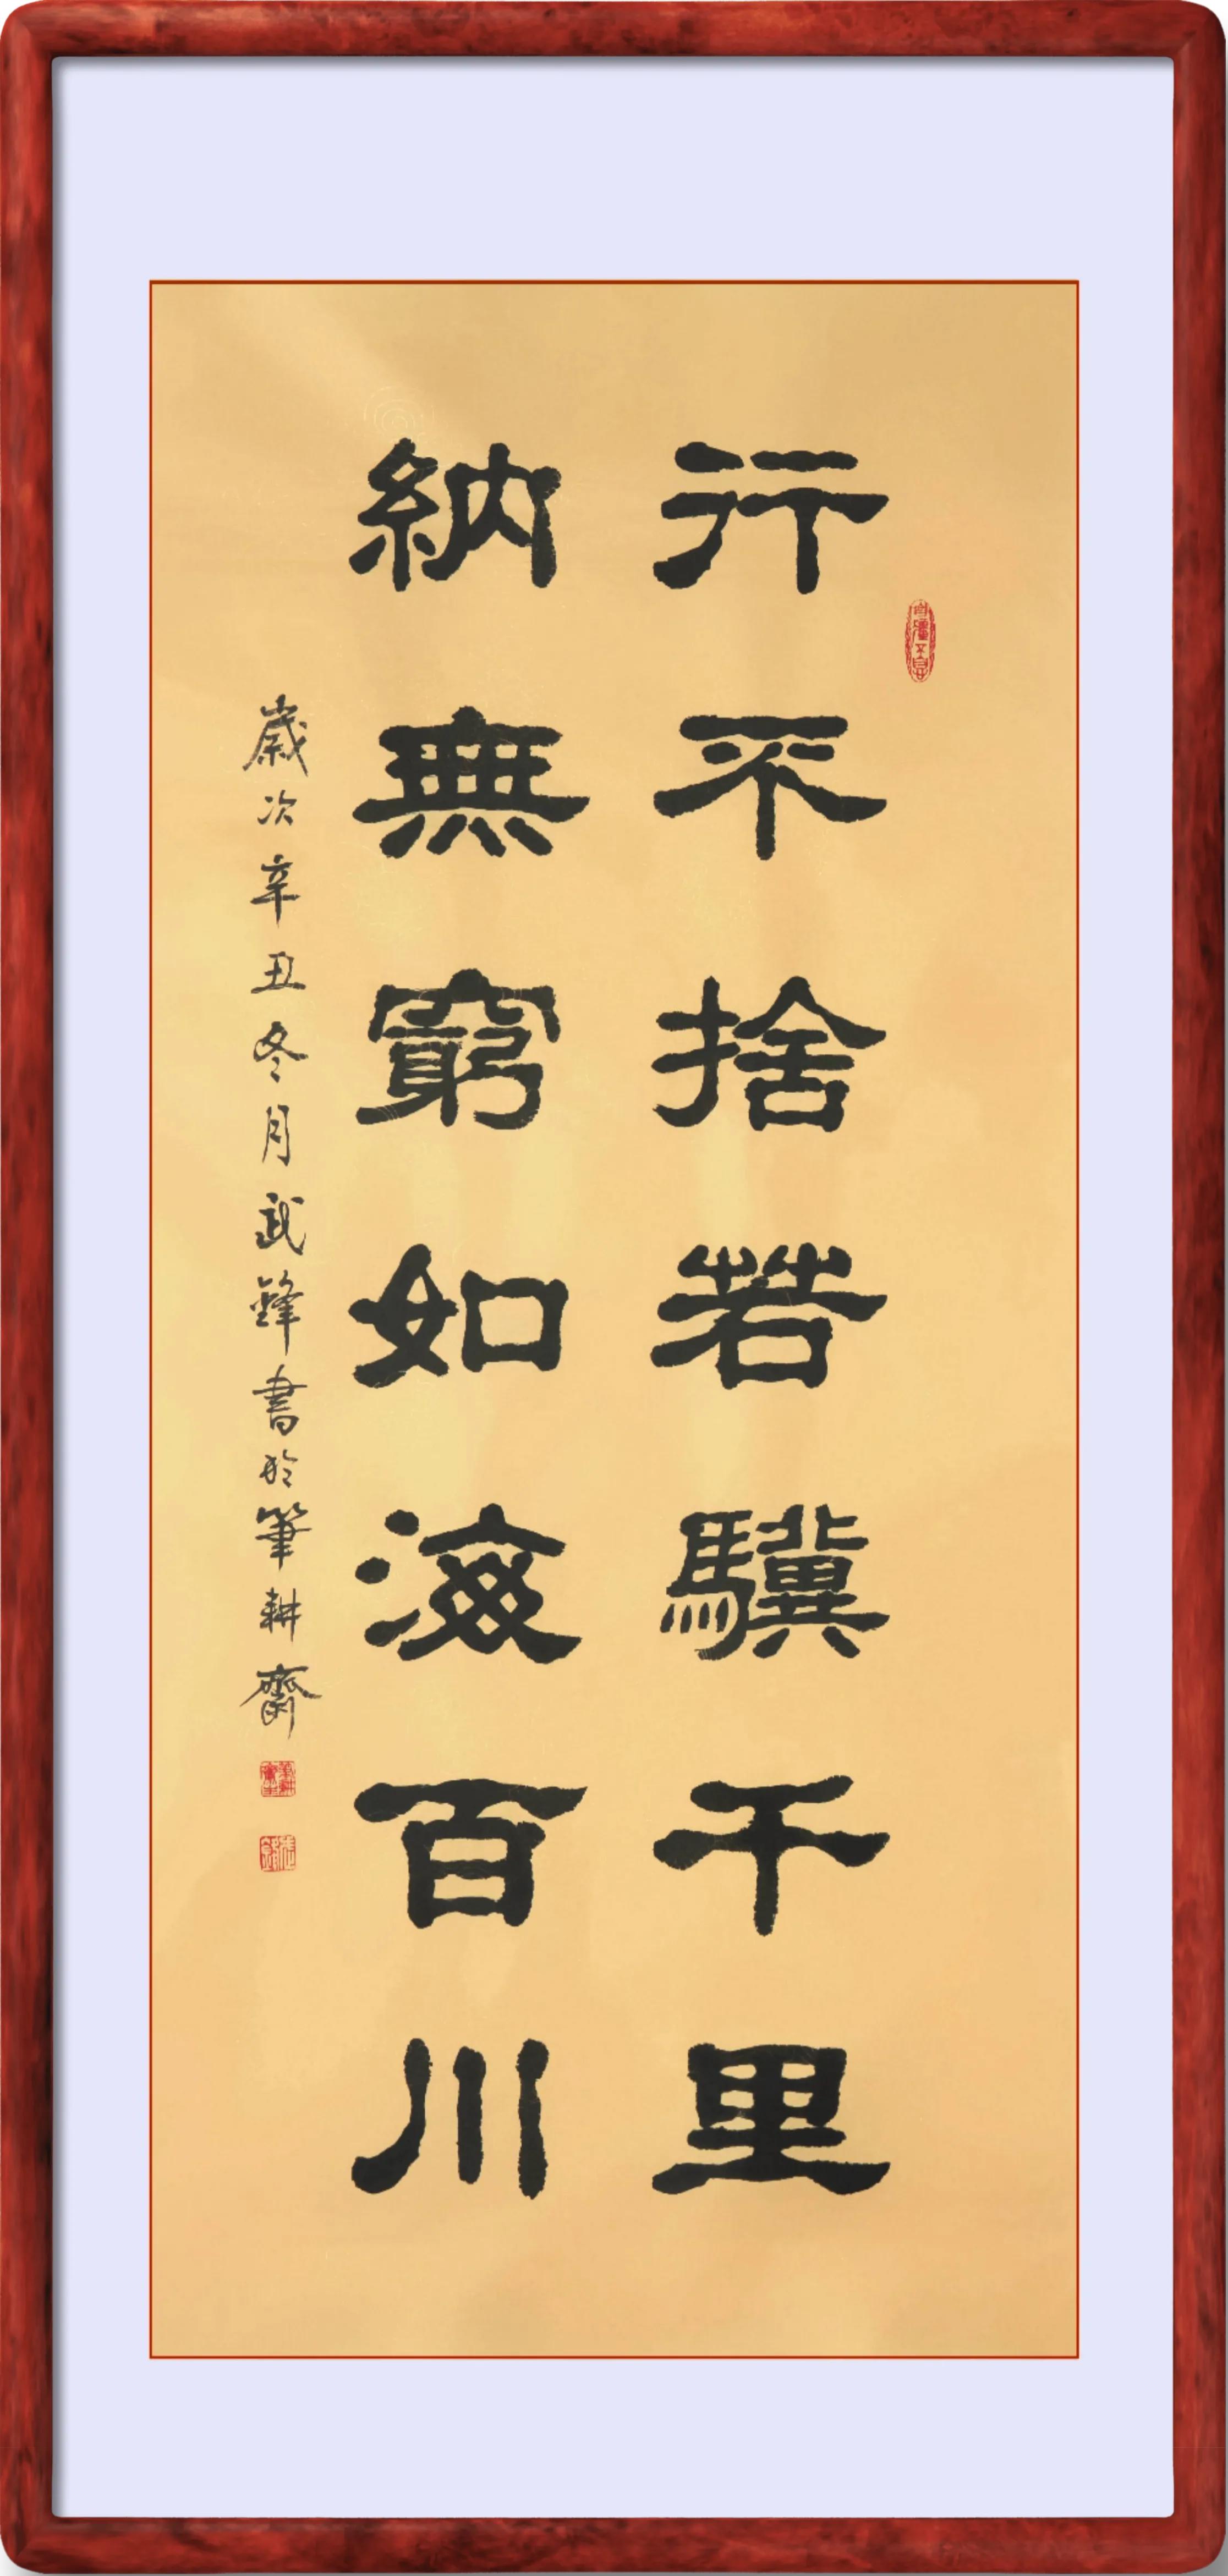 行不捨若驥千里
納無窮如海百川
歲次辛丑冬月武鋒書於筆耕齋
自彊不息